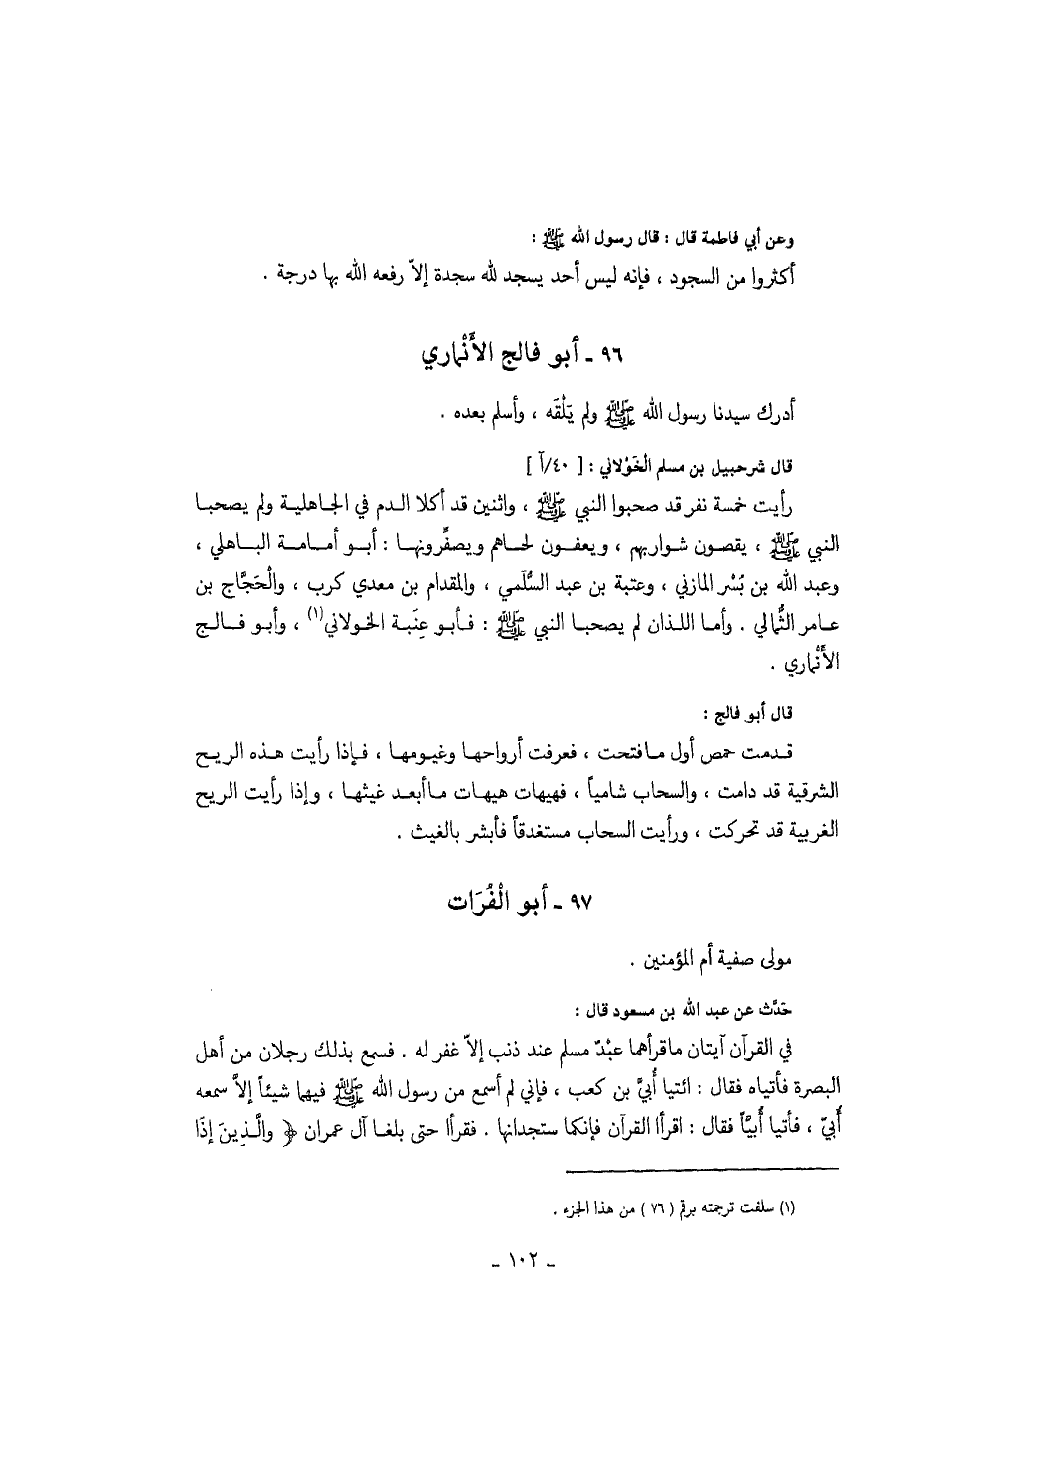 وعن أبي فاطمة قال : قال رسول الله ﷺ :
أكثروا من السجود ، فإنه ليس أحد يسجد لله سجدة إلاّ رفعه الله بها درجة .
٩٦ ـ أبو فالج الأَنْماري
أدرك سيدنا رسول الله ﷺ ولم يَلْقَه ، وأسلم بعده .
قال شرحبيل بن مسلم الخَوْلاني : [ ٤٠/آ ]
رأيت خمسة نفر قد صحبوا النبي ﷺ ، واثنين قد أكلا الدم في الجاهلية ولم يصحبا
النبي ﷺ ، يقصون شواربهم ، ويعفون لحاهم ويصفِّرونها : أبو أمامة الباهلي ،
وعبد الله بن بُسْر المازني ، وعتبة بن عبد السُّلَمي ، والمقدام بن معدي كرب ، والْحَجَّاج بن
عامر الثُّمالي . وأما اللذان لم يصحبا النبي ﷺ : فأبو عِنَبة الخولاني(١) ، وأبو فالج
الأَنْماري .
قال أبو فالج :
قدمت حمص أول مافتحت ، فعرفت أرواحها وغيومها ، فإذا رأيت هذه الريح
الشرقية قد دامت ، والسحاب شامياً ، فهيهات هيهات ماأبعد غيثها ، وإذا رأيت الريح
الغربية قد تحركت ، ورأيت السحاب مستغدقاً فأبشر بالغيث .
٩٧ ـ أبو الْفُرَات
مولى صفية أم المؤمنين .
حَدَّث عن عبد الله بن مسعود قال :
في القرآن آيتان ماقرأهما عبْدٌ مسلم عند ذنب إلاّ غفر له . فسمع بذلك رجلان من أهل
البصرة فأتياه فقال : ائتيا أُبيَّ بن كعب ، فإني لم أسمع من رسول الله ﷺ فيهما شيئاً إلاَّ سمعه
أُبيّ ، فأتيا أُبيَّاً فقال : اقرأا القرآن فإنكما ستجدانها . فقرأا حتى بلغا آل عمران ﴿ والَّذِينَ إذَا
(١) سلفت ترجمته برقم ( ٧٦ ) من هذا الجزء .
ـ ١٠٢ ـ